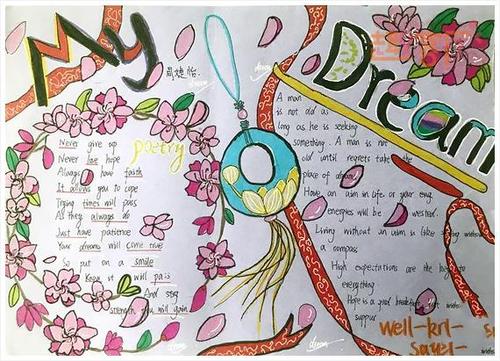 My
Dream
poetry
Never give up
Never lose hope
Always have faith
It allows you to cope
Trying times will pass
As they always do
Just have patience
Your dreams will come true
So put on a smile
Know it will pass
And
strength you will gain
A man
is not old as
long as he is seeking
something. A man is not
old until regrets take the
place of
Have an aim in life or your
energies will be
Living without an aim is like
a compass
High expectations are the key to
everything
Hope is a good breakfast
supper
well-kni-